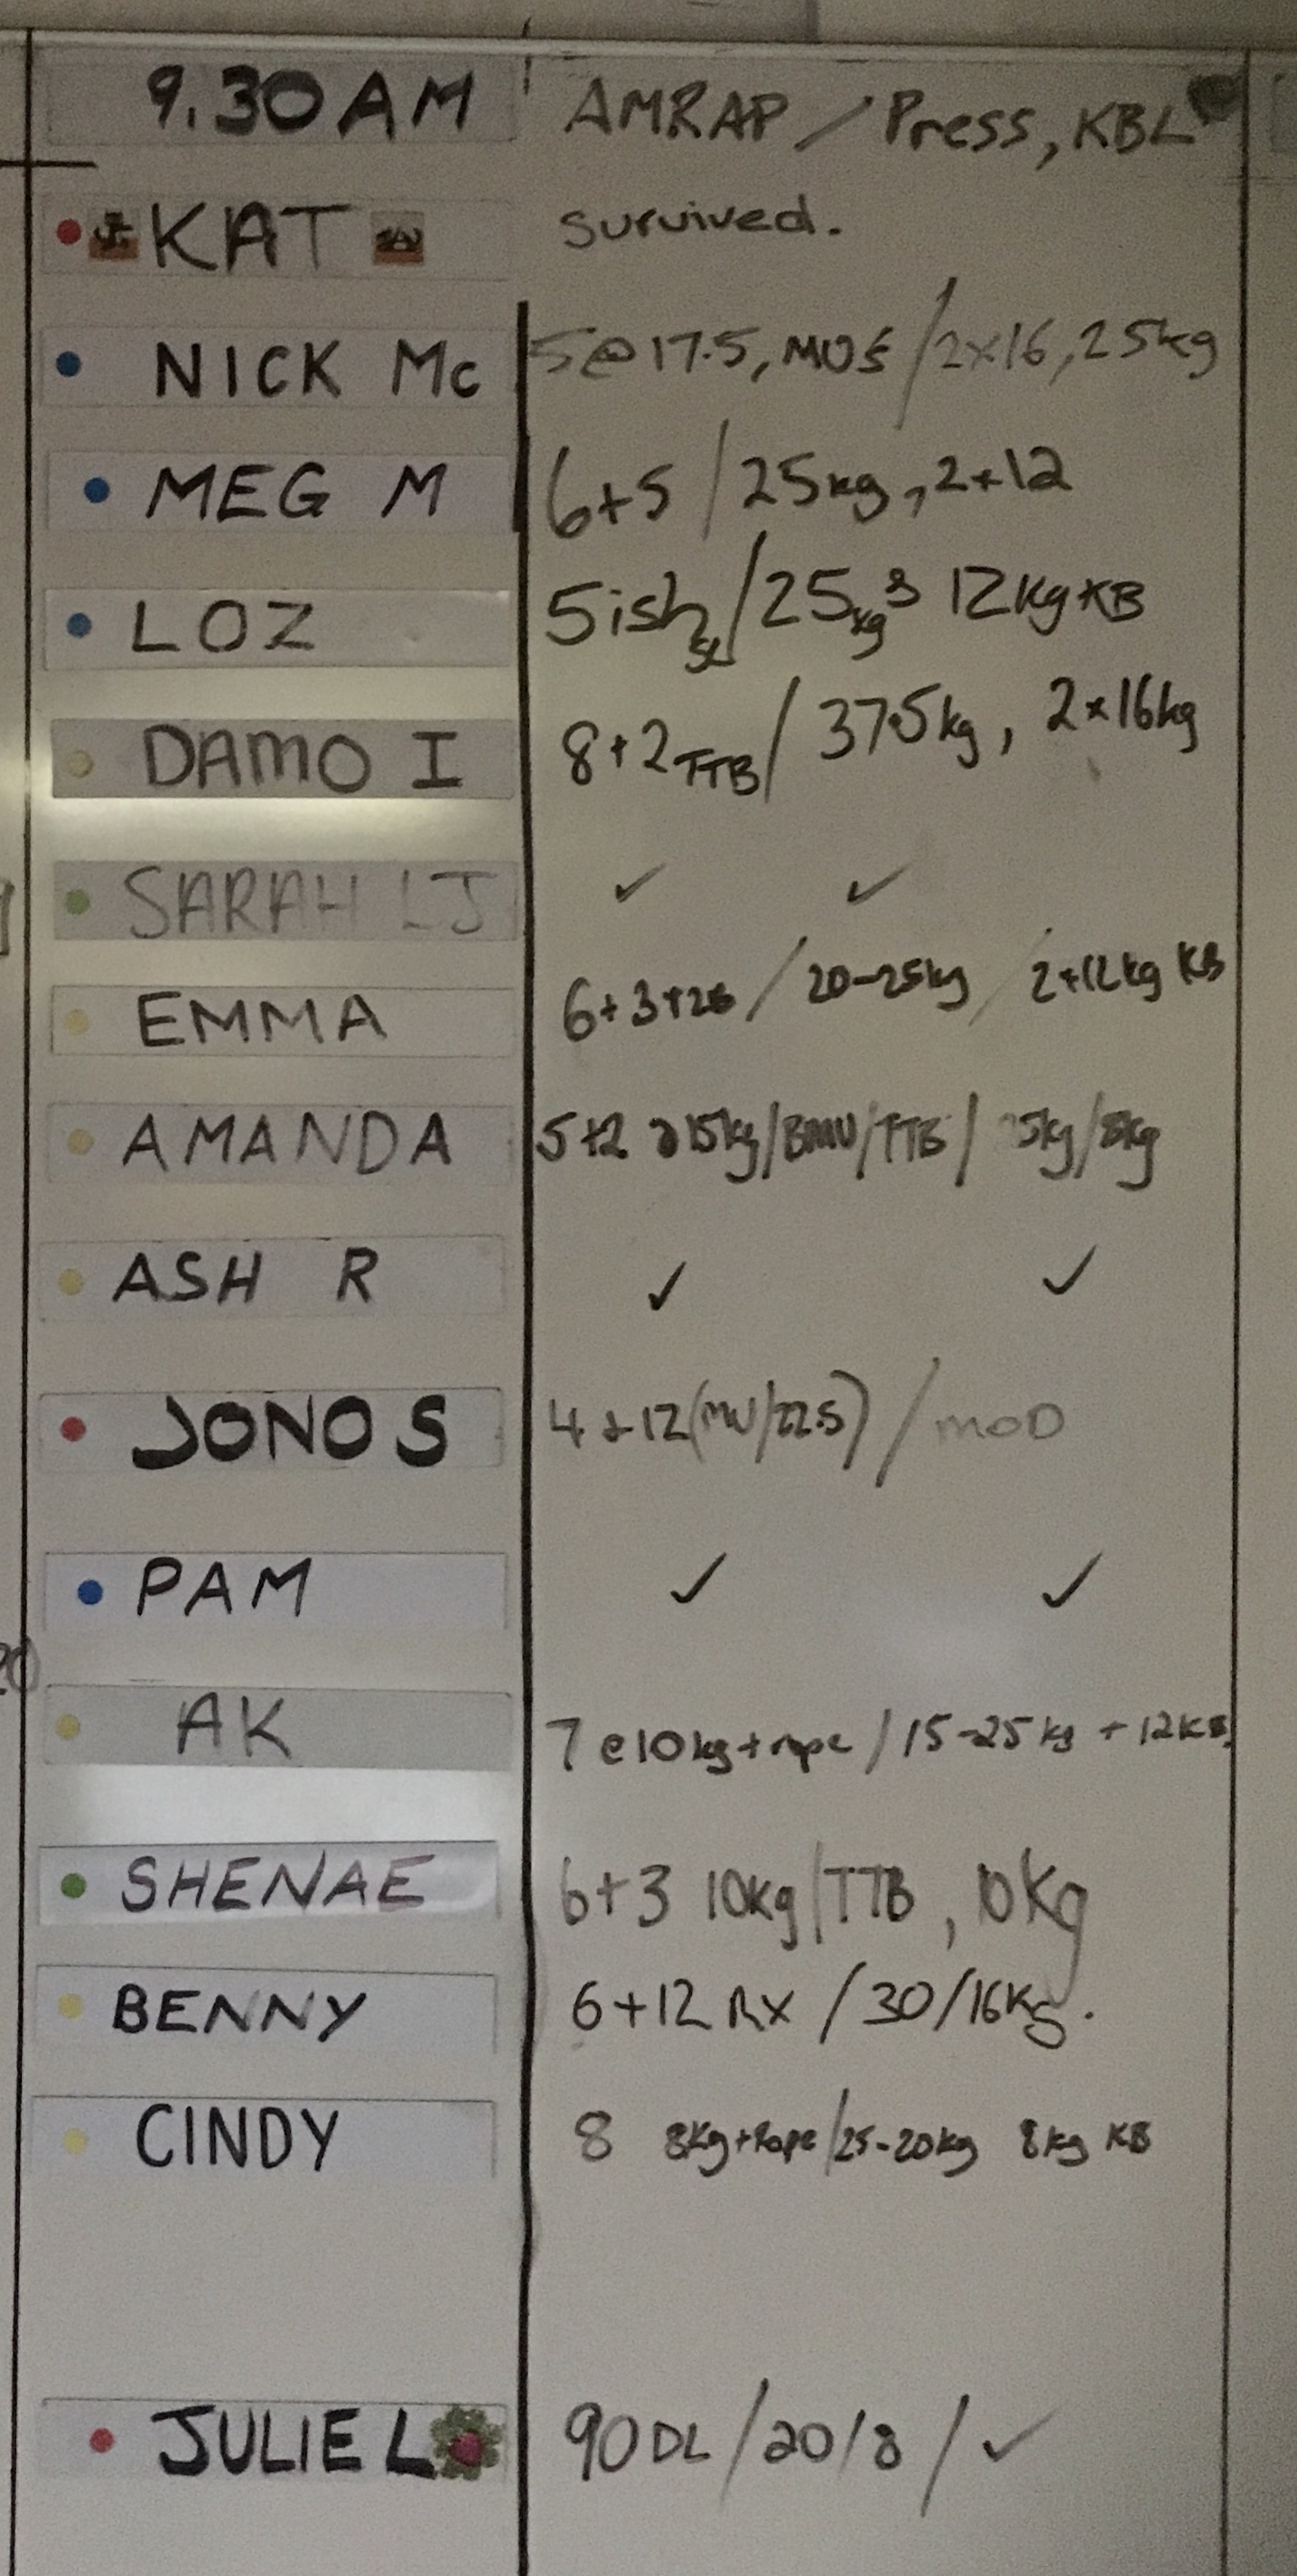 9.30AM AMRAP / Press, KBL
KAT survived.
NICK Mc 5@17.5, MUs / 2x16, 25kg
MEG M 6+5 / 25kg, 2+12
LOZ 5ish / 25kg 12kg KB
DAMO I 8+2 TTB / 37.5kg, 2x16kg
SARAH LJ ✓ ✓
EMMA 6+3+ / 20-25kg / 2+12kg KB
AMANDA 5+2 15kg/BMU/TTB / 5kg/8kg
ASH R ✓ ✓
JONO S 4+12(MU/22.5) / MOD
PAM ✓ ✓
AK 7@10kg+rope / 15-25kg + 12KB
SHENAE 6+3 10kg/TTB, 10kg
BENNY 6+12 RX / 30/16Kg.
CINDY 8 8Kg+Rope/25-20kg 8kg KB
JULIE L 90DL / 20/8 / ✓